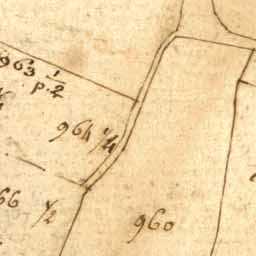 963 1/2
p.
964 1/4
66 1/2
960